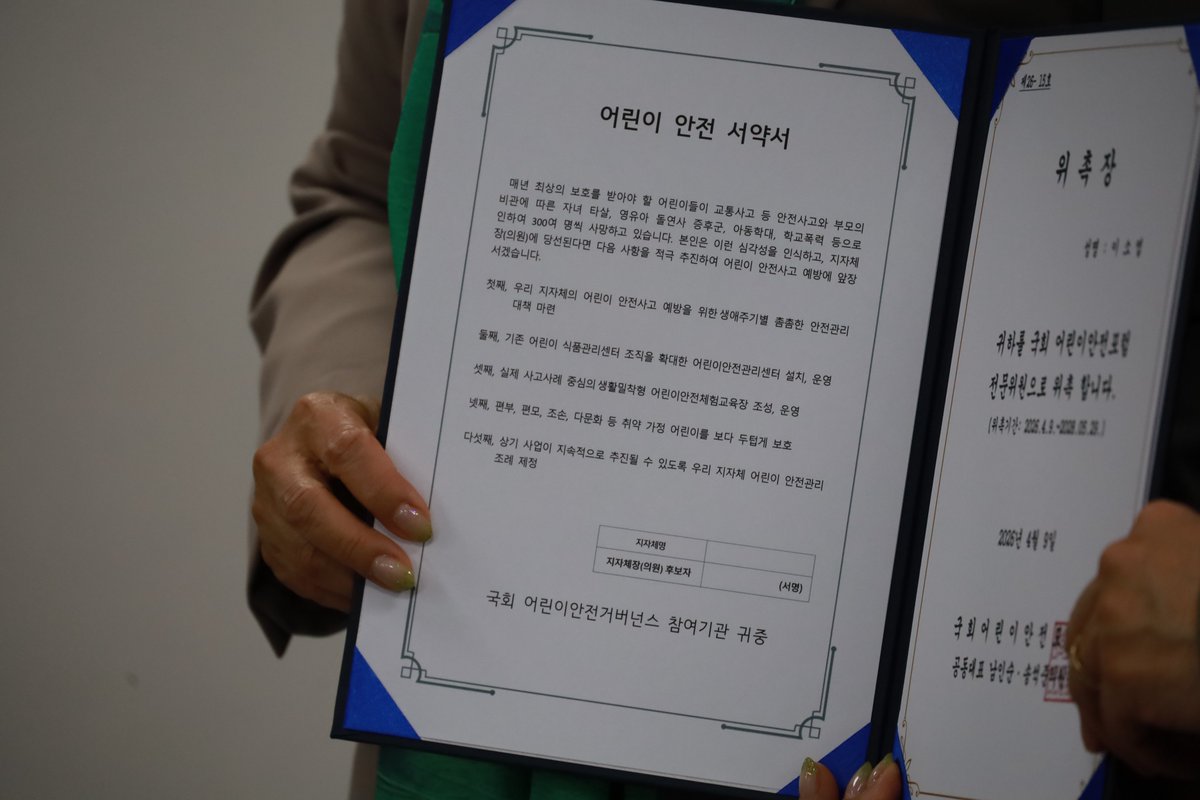 어린이 안전 서약서
매년 최상의 보호를 받아야 할 어린이들이 교통사고 등 안전사고와 부모의
비관에 따른 자녀 타살, 영유아 돌연사 증후군, 아동학대, 학교폭력 등으로
인하여 300여 명씩 사망하고 있습니다. 본인은 이런 심각성을 인식하고, 지자체
장(의원)에 당선된다면 다음 사항을 적극 추진하여 어린이 안전사고 예방에 앞장
서겠습니다.
첫째, 우리 지자체의 어린이 안전사고 예방을 위한 생애주기별 촘촘한 안전관리
대책 마련
둘째, 기존 어린이 식품관리센터 조직을 확대한 어린이안전관리센터 설치, 운영
셋째, 실제 사고사례 중심의 생활밀착형 어린이안전체험교육장 조성, 운영
넷째, 편부, 편모, 조손, 다문화 등 취약 가정 어린이를 보다 두텁게 보호
다섯째, 상기 사업이 지속적으로 추진될 수 있도록 우리 지자체 어린이 안전관리
조례 제정
지자체명
지자체장(의원) 후보자 (서명)
국회 어린이안전거버넌스 참여기관 귀중
제26-15호
위촉장
성명 : 이소
귀하를 국회 어린이안전포럼
전문위원으로 위촉 합니다.
(위촉기간: 2026.4.9.~2028.05.29.)
2026년 4월 9일
국회어린이안전포
공동대표 남인순·송석